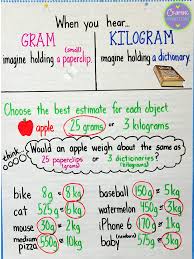 When you hear...
GRAM
(small)
imagine holding
a paperclip.
KILOGRAM
imagine holding
a dictionary.
Choose the best estimate for each object
apple 25 grams or 3 kilograms
think
Would an apple weigh about the same as
25 paperclips or 3 dictionaries?
(grams) (kilograms)
bike 8g or 8kg
cat 525g or 6kg
mouse 30g or 2kg
medium pizza 550g or 10kg
baseball 150g or 5kg
watermelon 450g or 3kg
iPhone 6 170g or 1kg
baby 575g or 5kg